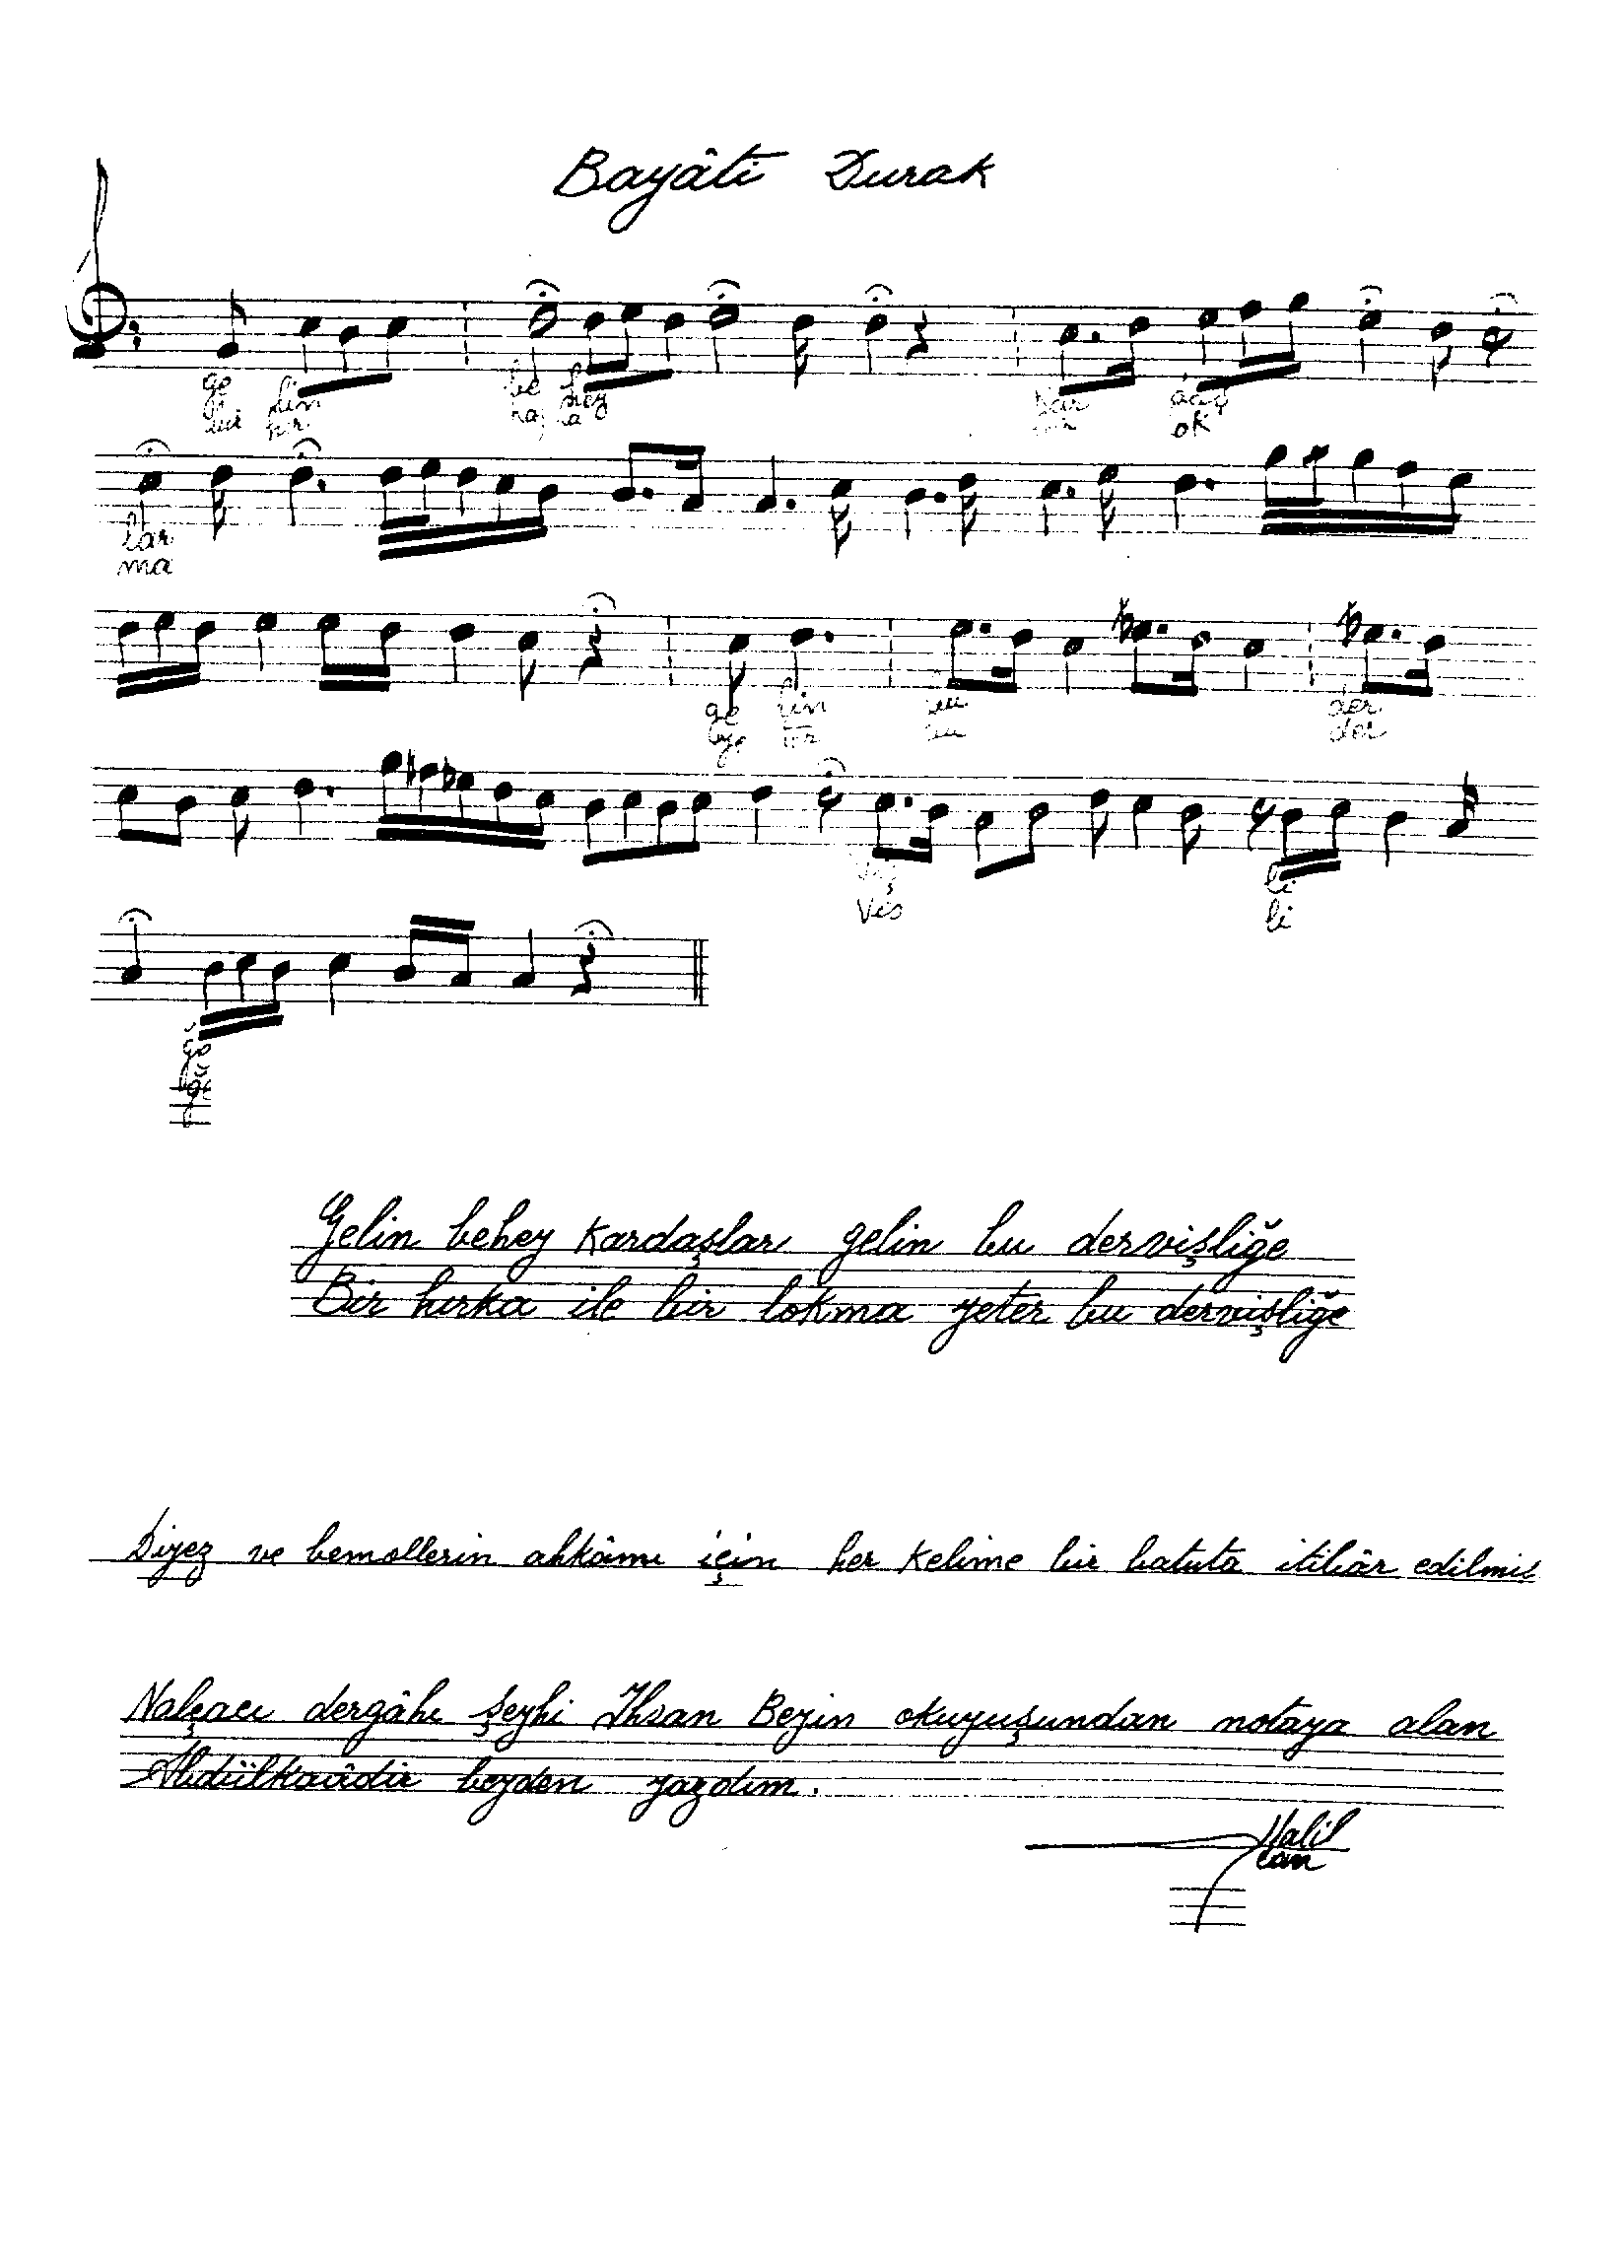 Bayâti Durak
ge lin be hey
bir hır
lar
ma ok
ge lin bu der
ter bu der
viş li
viş li
ğe
ğe
Gelin behey kardaşlar gelin bu dervişliğe
Bir hırka ile bir lokma yeter bu dervişliğe
Diyez ve bemollerin ahkâmı için her kelime bir batuta itibâr edilmiş
Nalçacı dergâhı Şeyhi İhsan Beyin okuyuşundan notaya alan
Abdülkaadir beyden yazdım.
Halil
Can